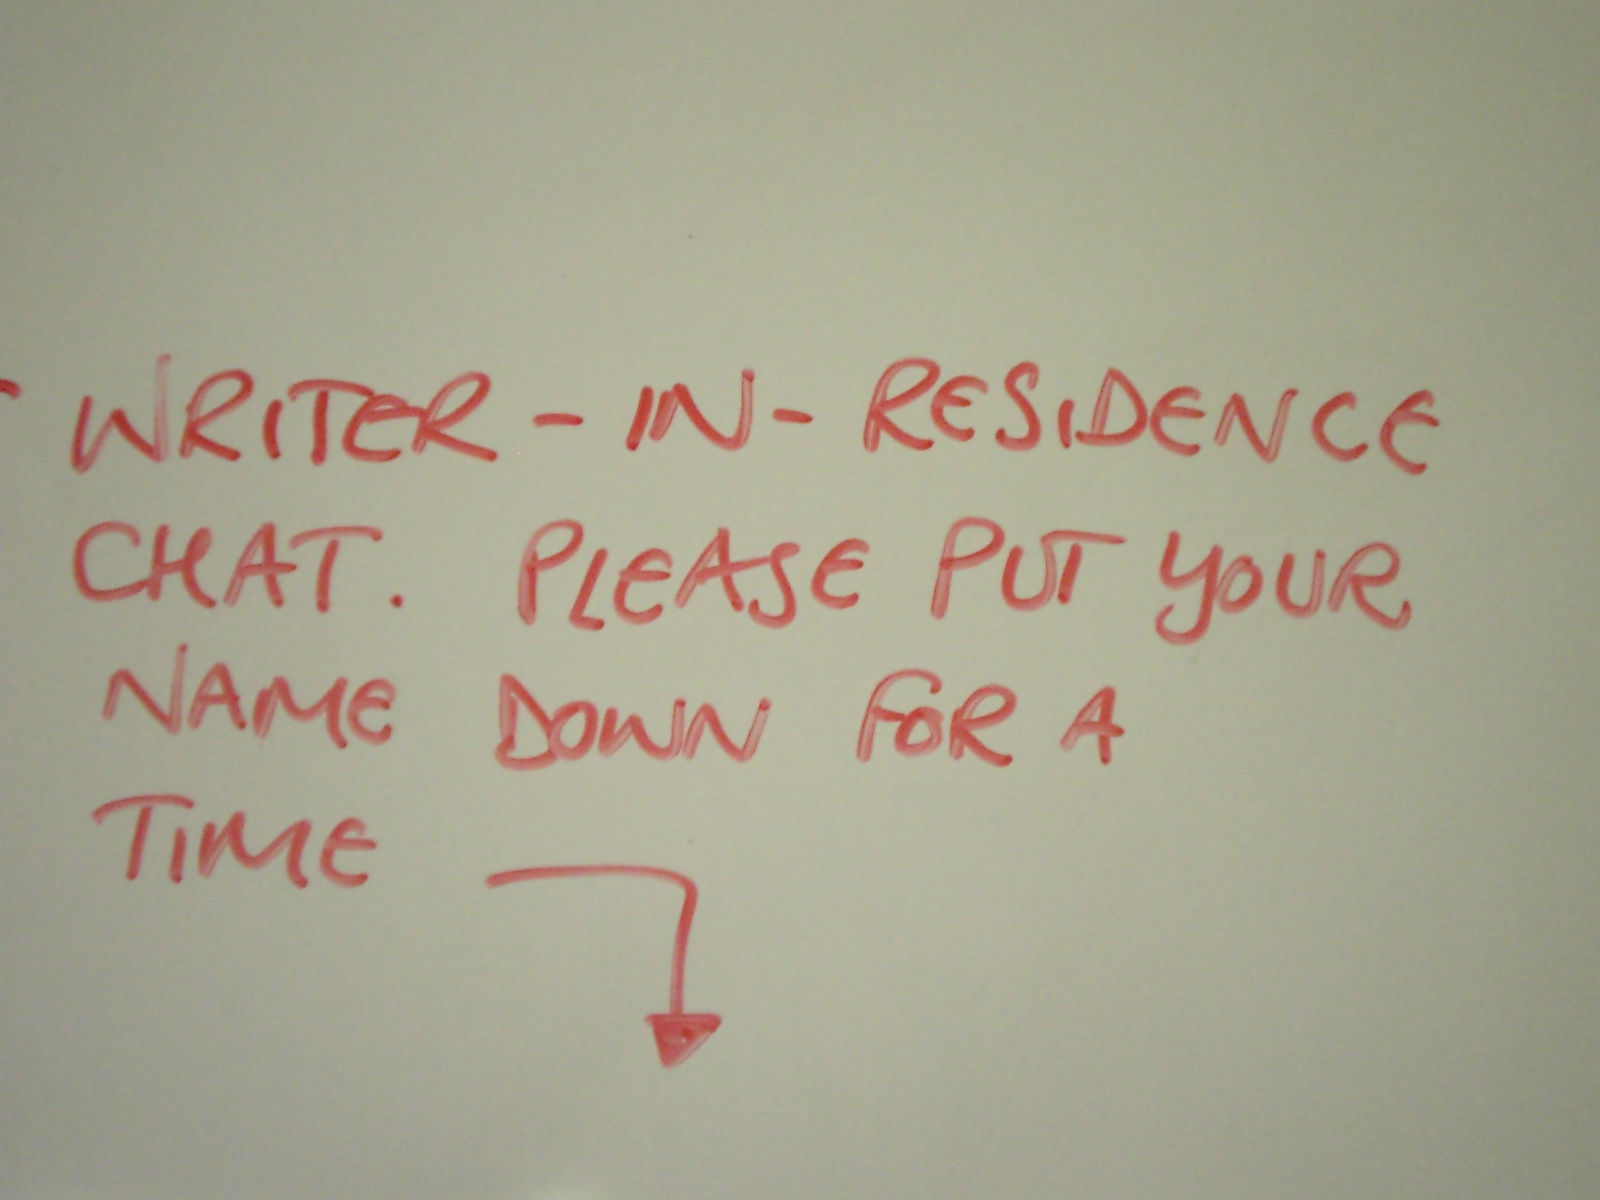 WRITER-IN-RESIDENCE
CHAT. PLEASE PUT YOUR
NAME DOWN FOR A
TIME